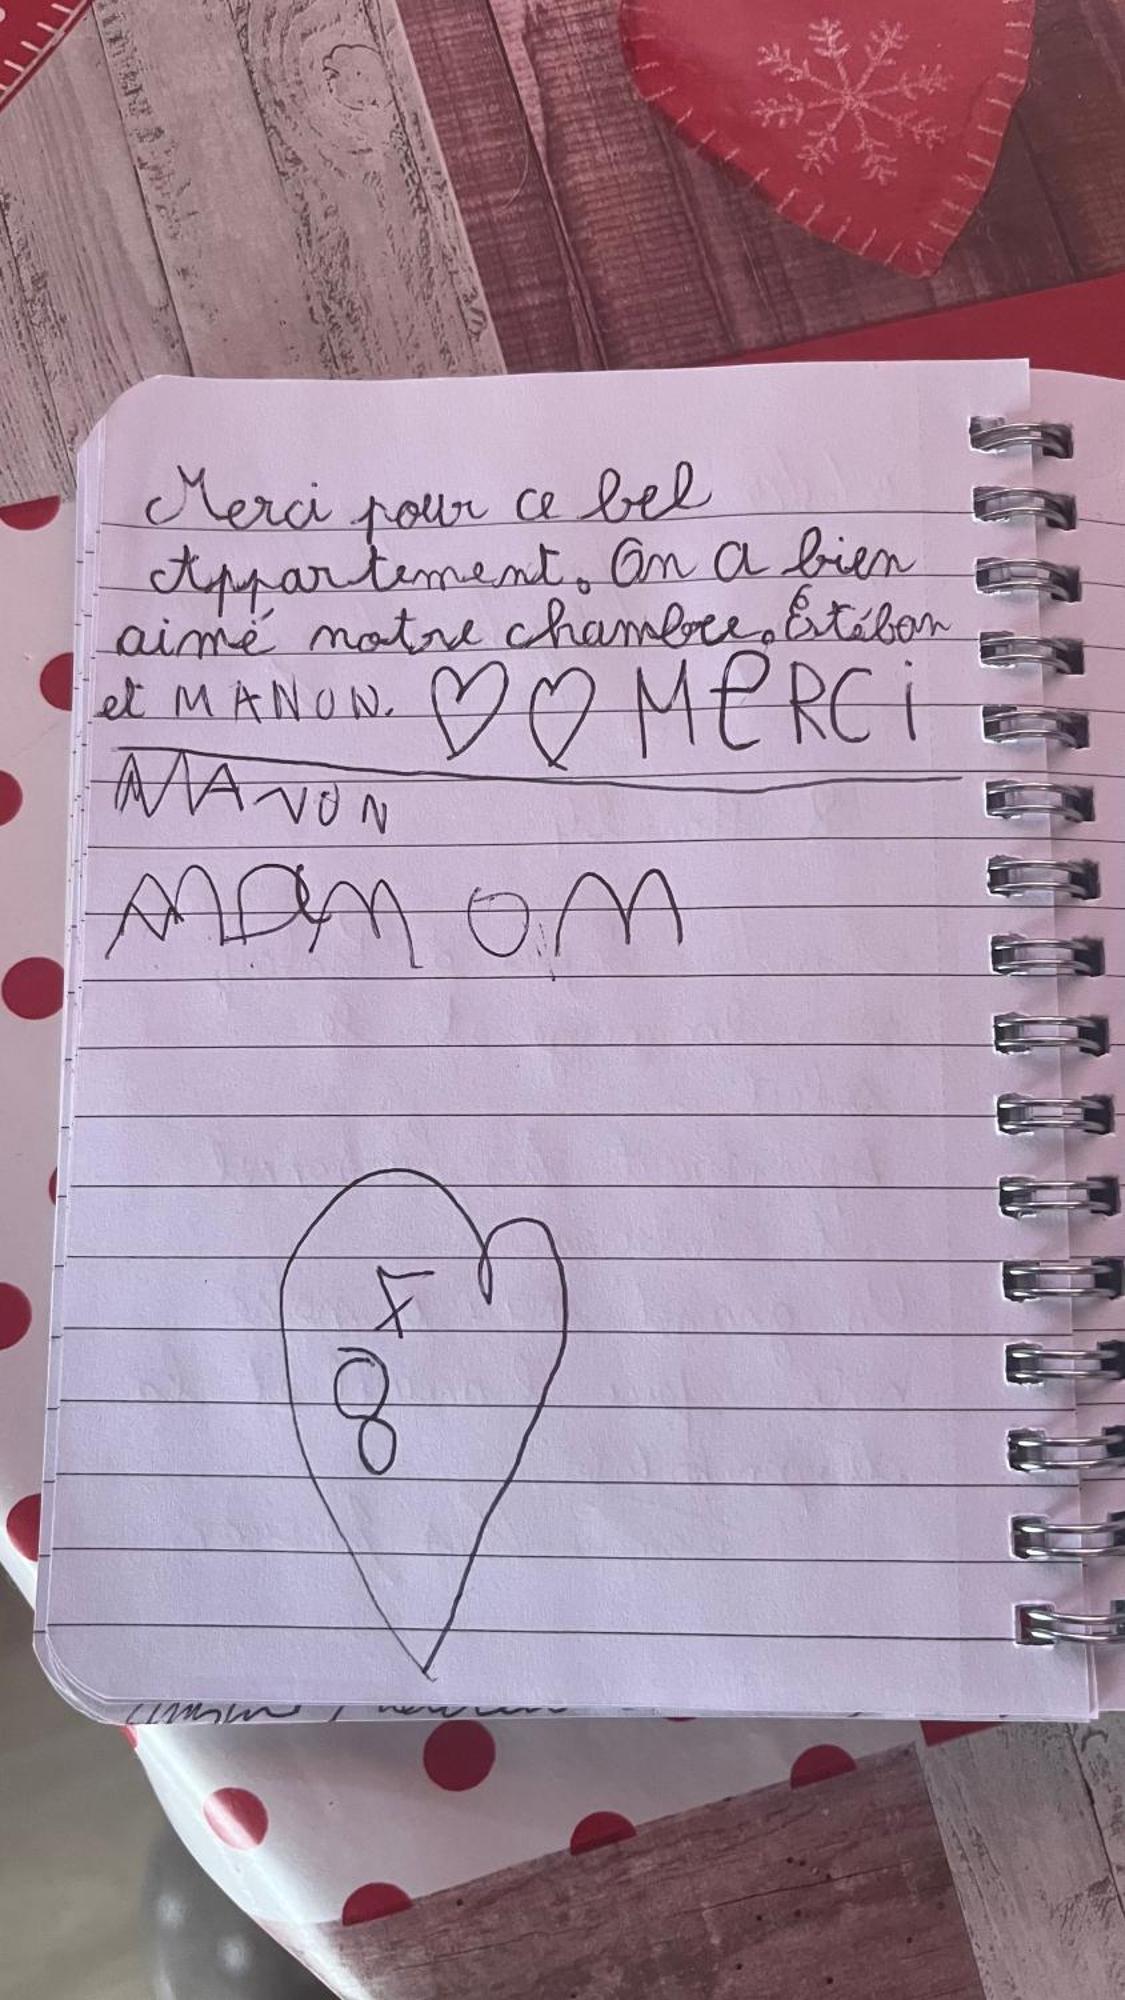 Merci pour ce bel
Appartement. On a bien
aimé notre chambre. Estéban
et MANON. ♡♡ MeRCi
MANON
8